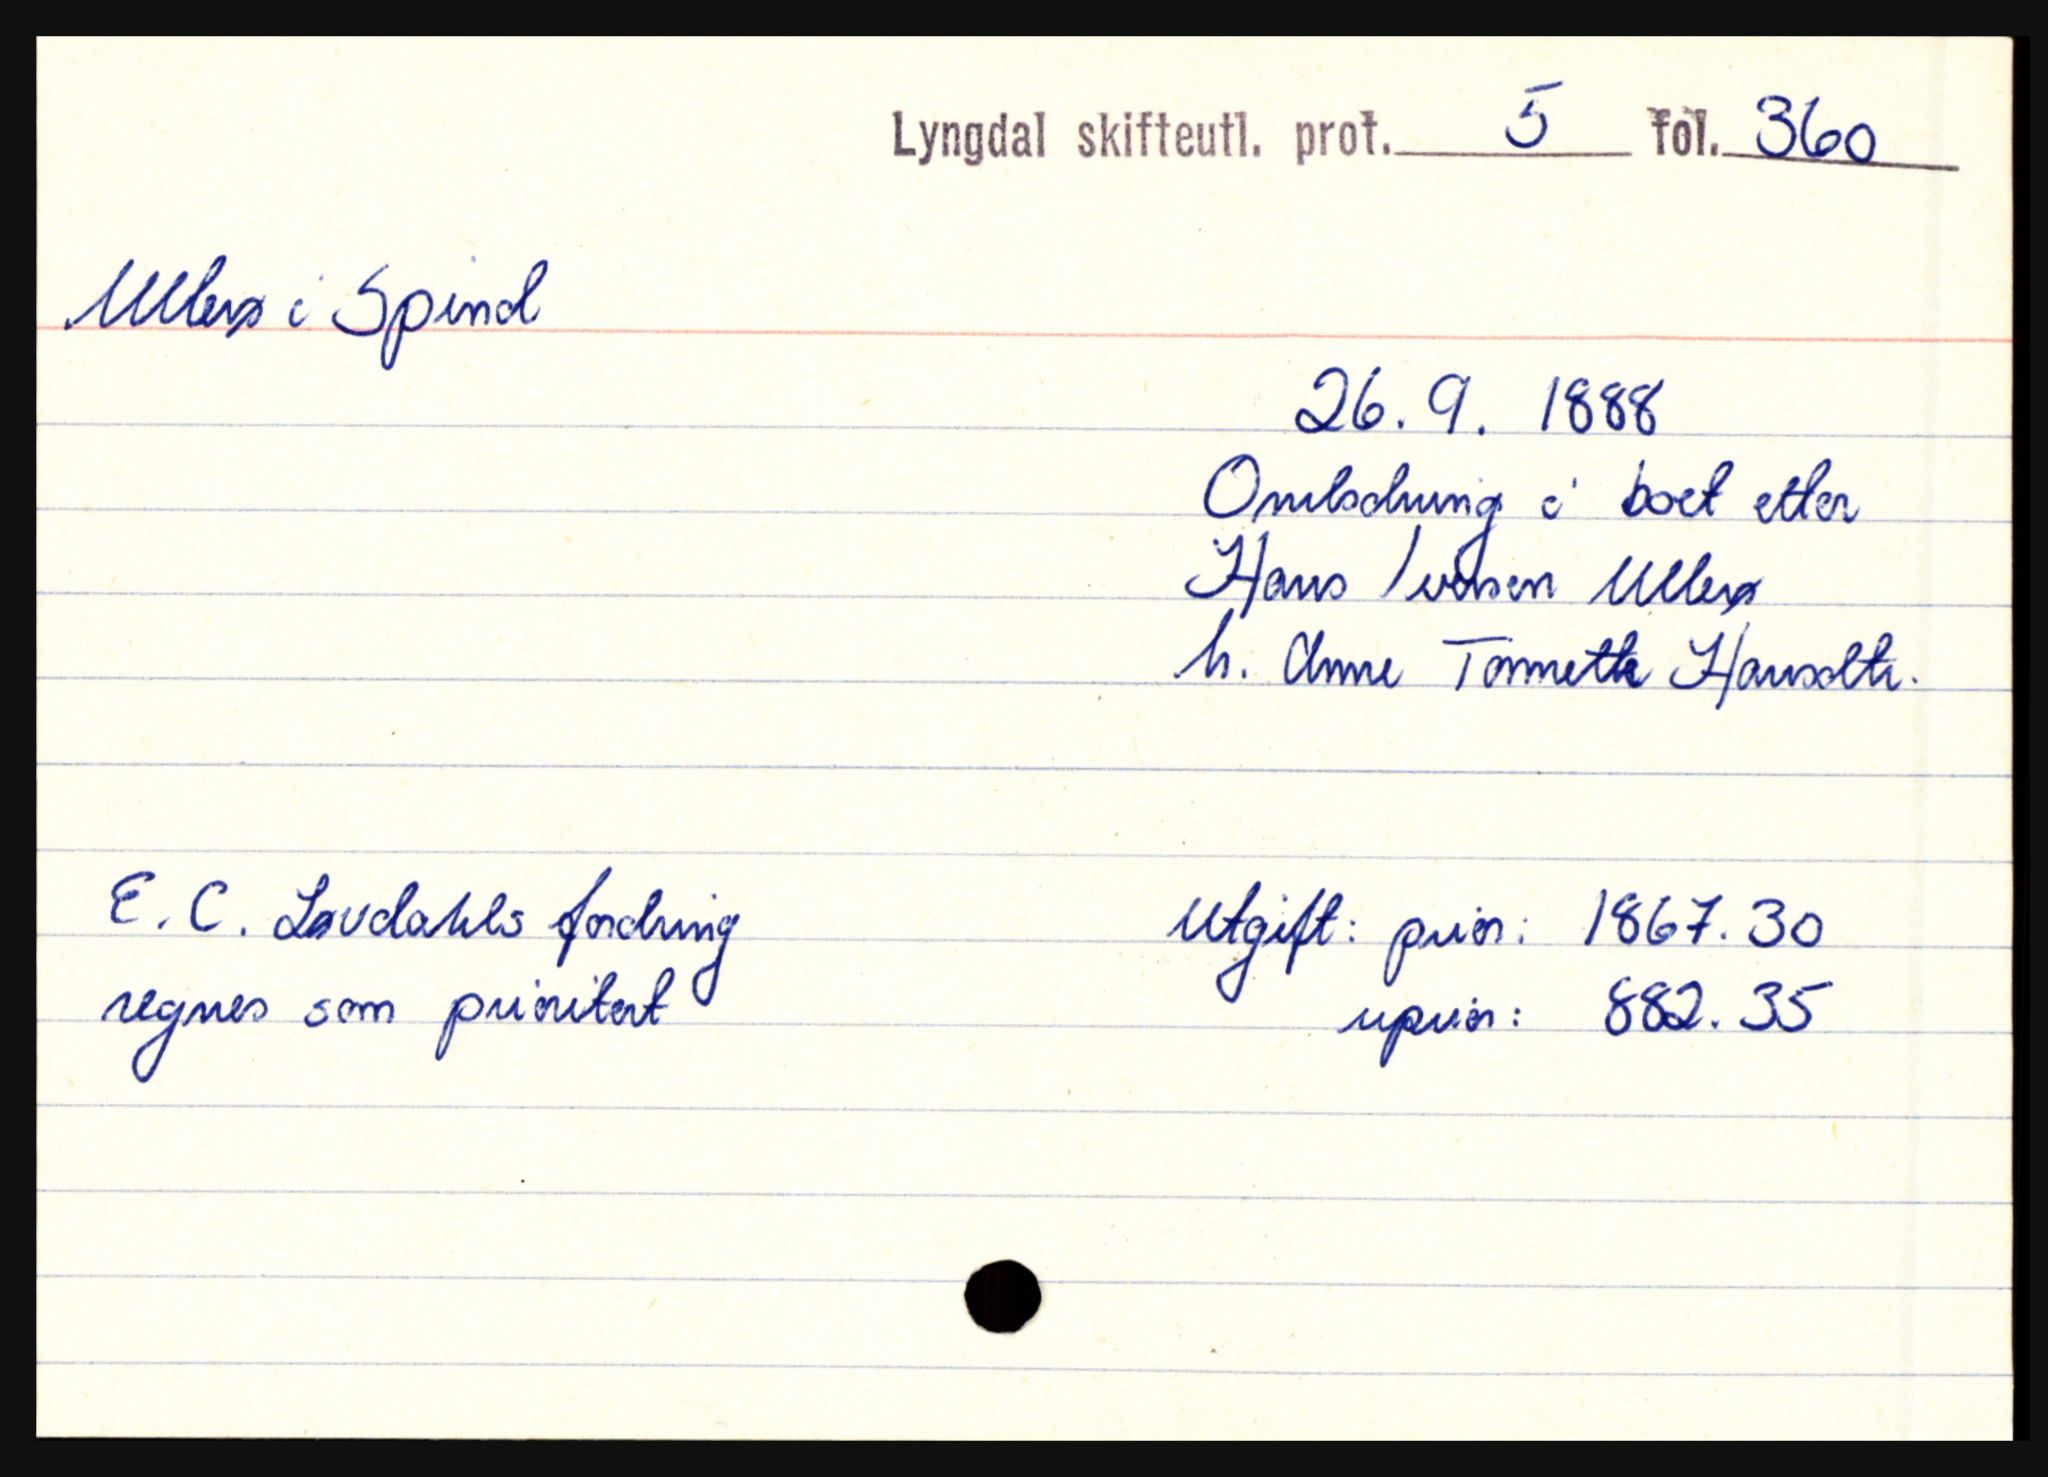 Lyngdal skifteutl. prot. 5 fol. 360
Ullerø i Spind
26. 9. 1888
Omlodning i boet etter
Hans Iversen Ullerø
h. Anne Tonnette Hansdtr.
E. C. Lavdahls fordring
regnes som prioritert
Utgift: prior: 1867.30
uprior: 882.35